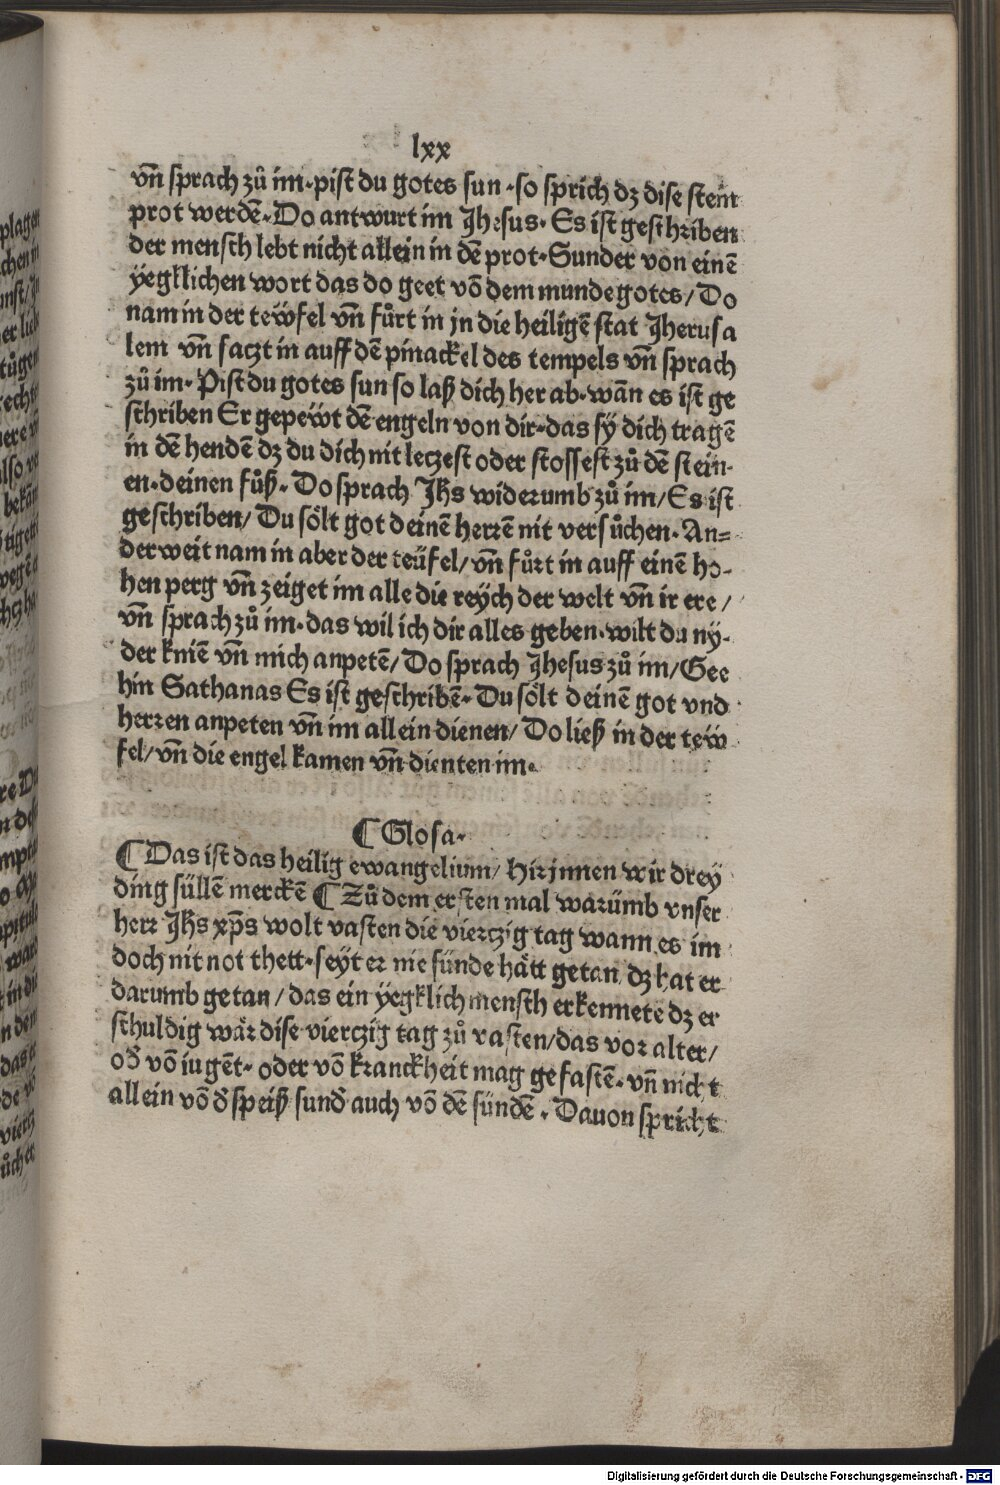 lxx
vn̄ sprach zů im·pist du gotes sun·so sprich dz dise stein
prot werdē·Do antwurt im Jhesus·Es ist geschriben
der mensch lebt nicht allein in dē prot·Sunder von einē
yegklichen wort das do geet vō dem munde gotes/Do
nam in der tewfel vn̄ fůrt in jn die heiligē stat Jherusa
lem vn̄ saczt in auff dē pinackel des tempels vn̄ sprach
zů im·Pist du gotes sun so laß dich her ab·wān es ist ge
schriben Er gepewt dē engeln von dir·das sÿ dich tragē
in dē hendē dz du dich nit leczest oder stossest zů dē stein
en·deinen fůß·Do sprach Jhs widerumb zů im/Es ist
geschriben/Du sölt got deinē herrē nit versůchen·An=
derweit nam in aber der teüfel/vn̄ fůrt in auff einē ho-
hen perg vn̄ zeiget im alle die reÿch der welt vn̄ ir ere/
vn̄ sprach zů im·das wil ich dir alles geben·wilt du nÿ-
der kniē vn̄ mich anpetē/Do sprach Jhesus zů im/Gee
hin Sathanas Es ist geschribē·Du sölt deinē got vnd
herren anpeten vn̄ im allein dienen/Do ließ in der tew
fel/vn̄ die engel kamen vn̄ dienten im·
¶ Glosa·
¶ Das ist das heilig ewangelium/Hirjnnen wir drey
ding süllē merckē ¶ Zů dem ersten mal warümb vnser
herr Jhs xp̄s wolt vasten die vierczig tag wann es im
doch nit not thett·seyt er nie sünde hätt getan dz hat er
darumb getan/das ein yegklich mensch erkennete dz er
schuldig wär dise vierczig tag zů vasten/das vor alter/
oδ vō iugēt·oder vō kranckheit mag gefastē·vn̄ nicht
allein vō δ speiß sunδ auch vō dē sündē·Dauon spricht
plagen
Digitalisierung gefördert durch die Deutsche Forschungsgemeinschaft - DFG